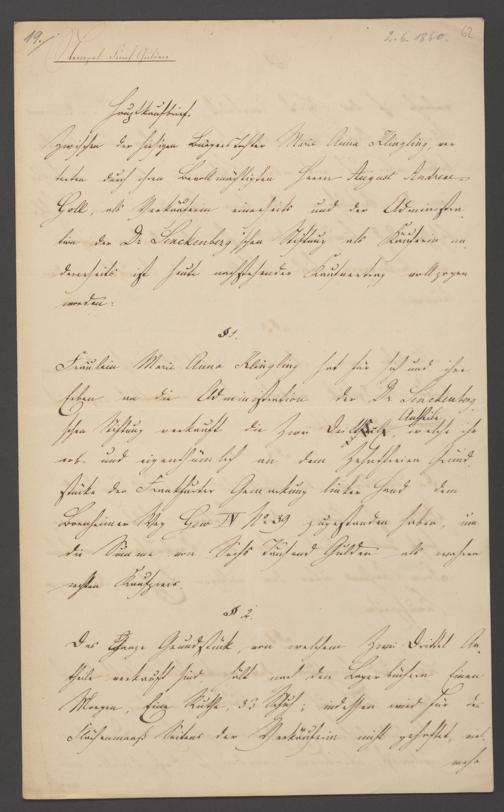 19.
2.6.1860. 62
Stempel Fünf Gulden
Hauptkaufbrief.
Zwischen der hiesigen Bürgerstochter Marie Anna Klingling, ver
treten durch ihren Bevollmächtigten Herrn August Andreas
Holk, als Verkäuferin einerseits und der Administra
tion der Dr Senckenberg'schen Stiftung als Käuferin an
dererseits ist heute nachstehender Kaufvertrag vollzogen
worden:
§ 1.
Fräulein Marie Anna Klingling hat für sich und ihre
Erben an die Administration der Dr Senckenberg
schen Stiftung verkauft die zwei Drittheile Antheile, welche ihr
erb- und eigenthümlich an dem zehntfreien Grund
stücke der Frankfurter Gemarkung linker Hand dem
Bornheimer Weg Gew IV No 39 zugestanden haben, um
die Summe von Sechs Tausend Gulden als wahren
rechten Kaufpreis.
§ 2.
Das Ganze Grundstück, von welchem zwei Drittel An
theile verkauft sind hält nach den Lagerbüchern Einen
Morgen, Eine Ruthe, 33 Schuh; indessen wird für das
Flächenmaaß Seitens der Verkäuferin nicht gehaftet, viel
mehr